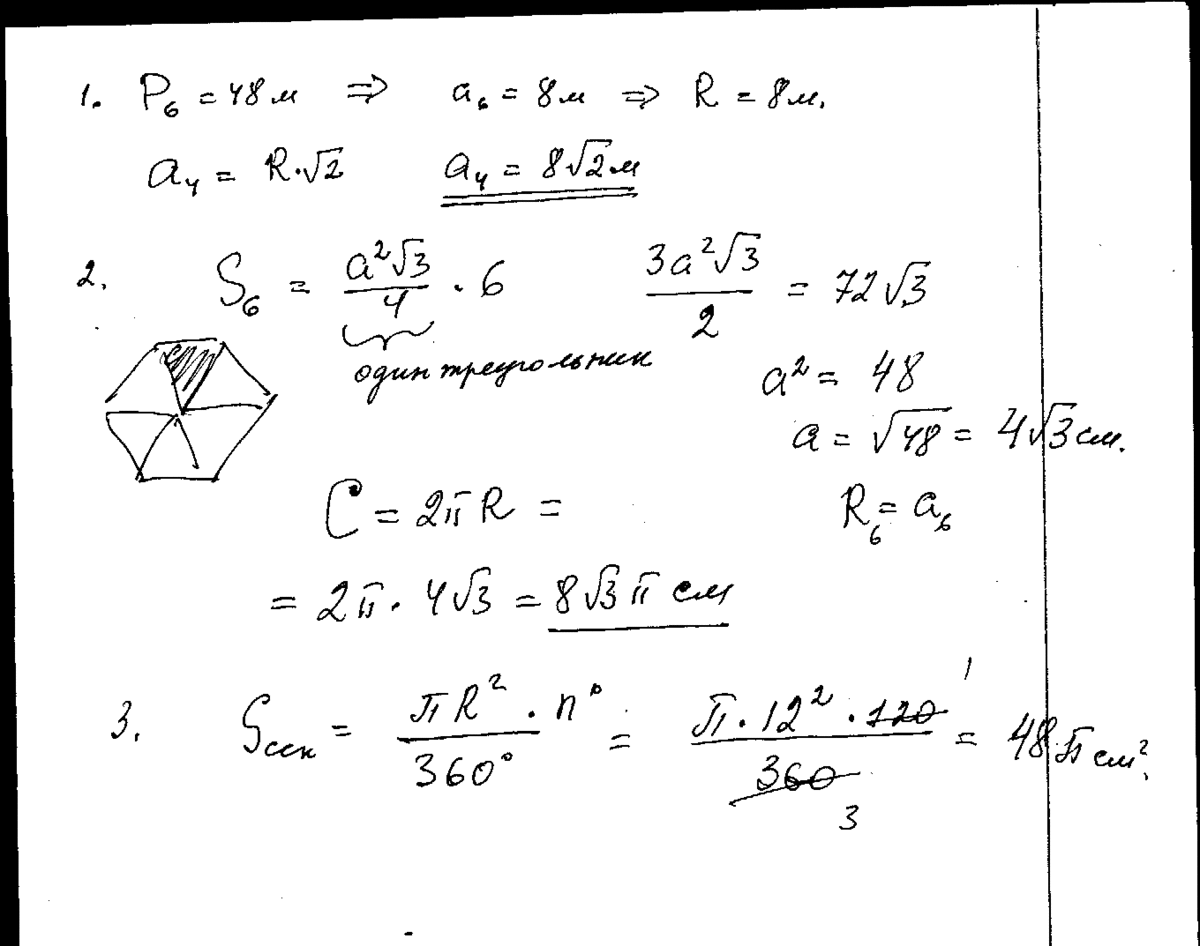 1. P₆ = 48 м ⇒ a₆ = 8 м ⇒ R = 8 м.
a₄ = R·√2 a₄ = 8√2 м
2. S₆ = a²√3/4 · 6 3a²√3/2 = 72√3
один треугольник
a² = 48
a = √48 = 4√3 см.
C = 2πR = R₆ = a₆
= 2π · 4√3 = 8√3 π см
3. Sсек = πR² · n°/360° = π · 12² · 120/360 = 48π см².
1
3